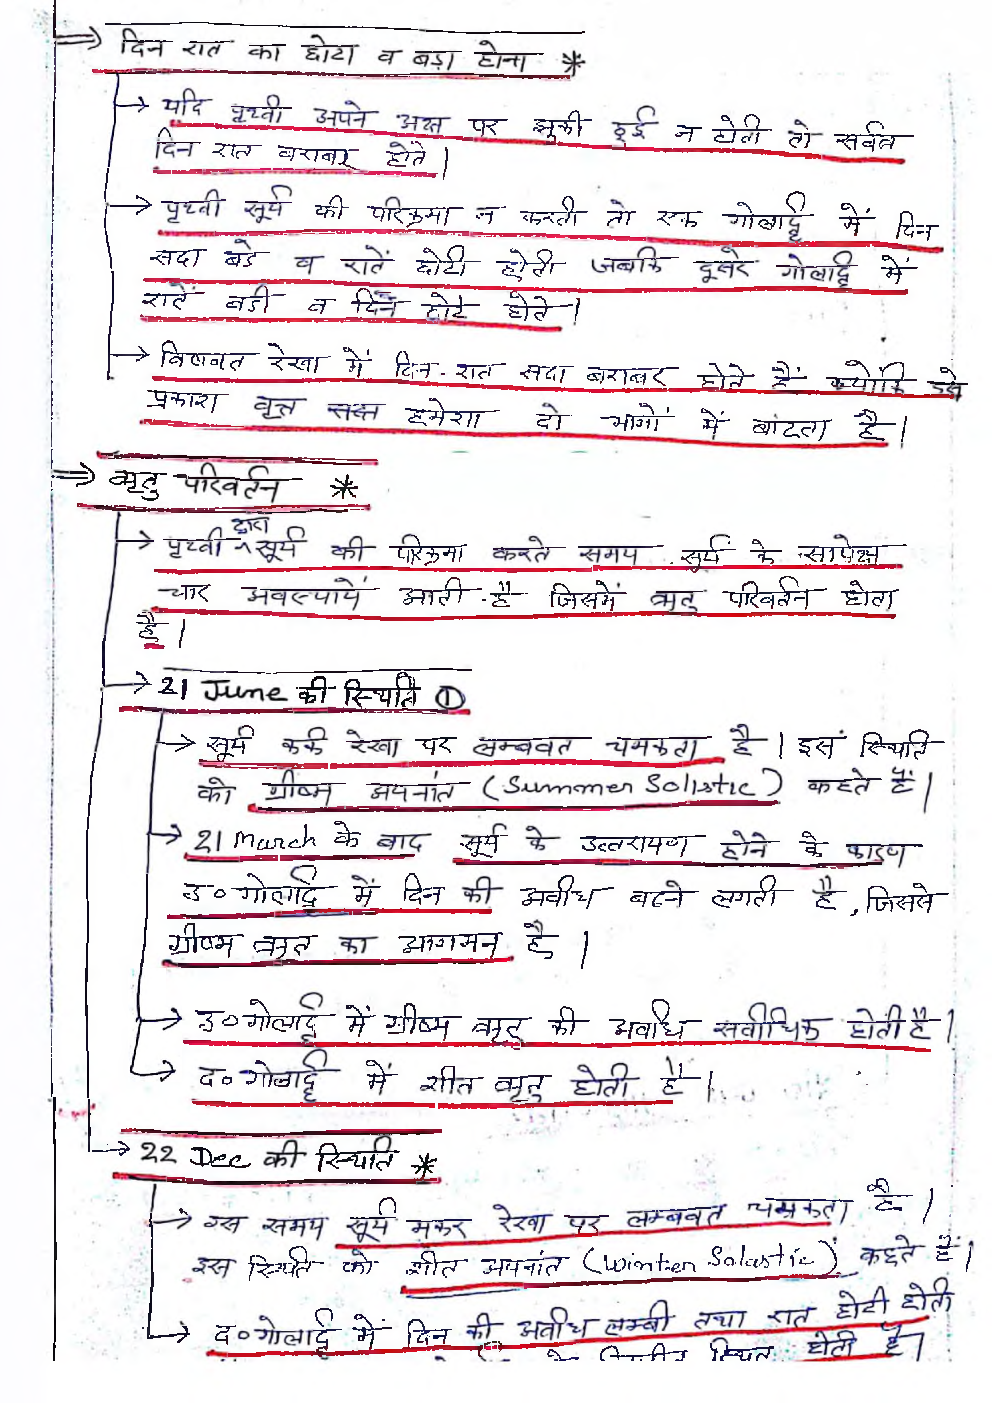 ⇒ दिन रात का छोटा व बड़ा होना *
→ यदि पृथ्वी अपने अक्ष पर झुकी हुई न होती तो सर्वत्र
दिन रात बराबर होते |
→ पृथ्वी सूर्य की परिक्रमा न करती तो एक गोलार्द्ध में दिन
सदा बडे व रातें छोटी होती जबकि दूसरे गोलार्द्ध में
रातें बडी व दिन छोटे होते |
→ विषवत रेखा में दिन-रात सदा बराबर होते हैं क्योंकि इसे
प्रकाश वृत्त सदा हमेशा दो भागों में बांटता है |
⇒ ऋतु परिवर्तन *
→ पृथ्वी ^ द्वारा सूर्य की परिक्रमा करते समय सूर्य के सापेक्ष
चार अवस्थायें आती है जिसमें ऋतु परिवर्तन होता
है |
→ 21 June की स्थिति ①
→ सूर्य कर्क रेखा पर लम्बवत चमकता है | इस स्थिति
को ग्रीष्म अयनांत (Summer Solistic) कहते हैं |
→ 21 March के बाद सूर्य के उत्तरायण होने के कारण
उ० गोलार्द्ध में दिन की अवधि बढने लगती है, जिससे
ग्रीष्म ऋतु का आगमन है |
→ उ० गोलार्द्ध में ग्रीष्म ऋतु की अवधि सर्वाधिक होती है |
→ द० गोलार्द्ध में शीत ऋतु होती है |
→ 22 Dec की स्थिति *
→ इस समय सूर्य मकर रेखा पर लम्बवत चमकता है |
इस स्थिति को शीत अयनांत (Winter Solastic) कहते हैं |
→ द० गोलार्द्ध में दिन की अवधि लम्बी तथा रात छोटी होती
स्थिति होती है |